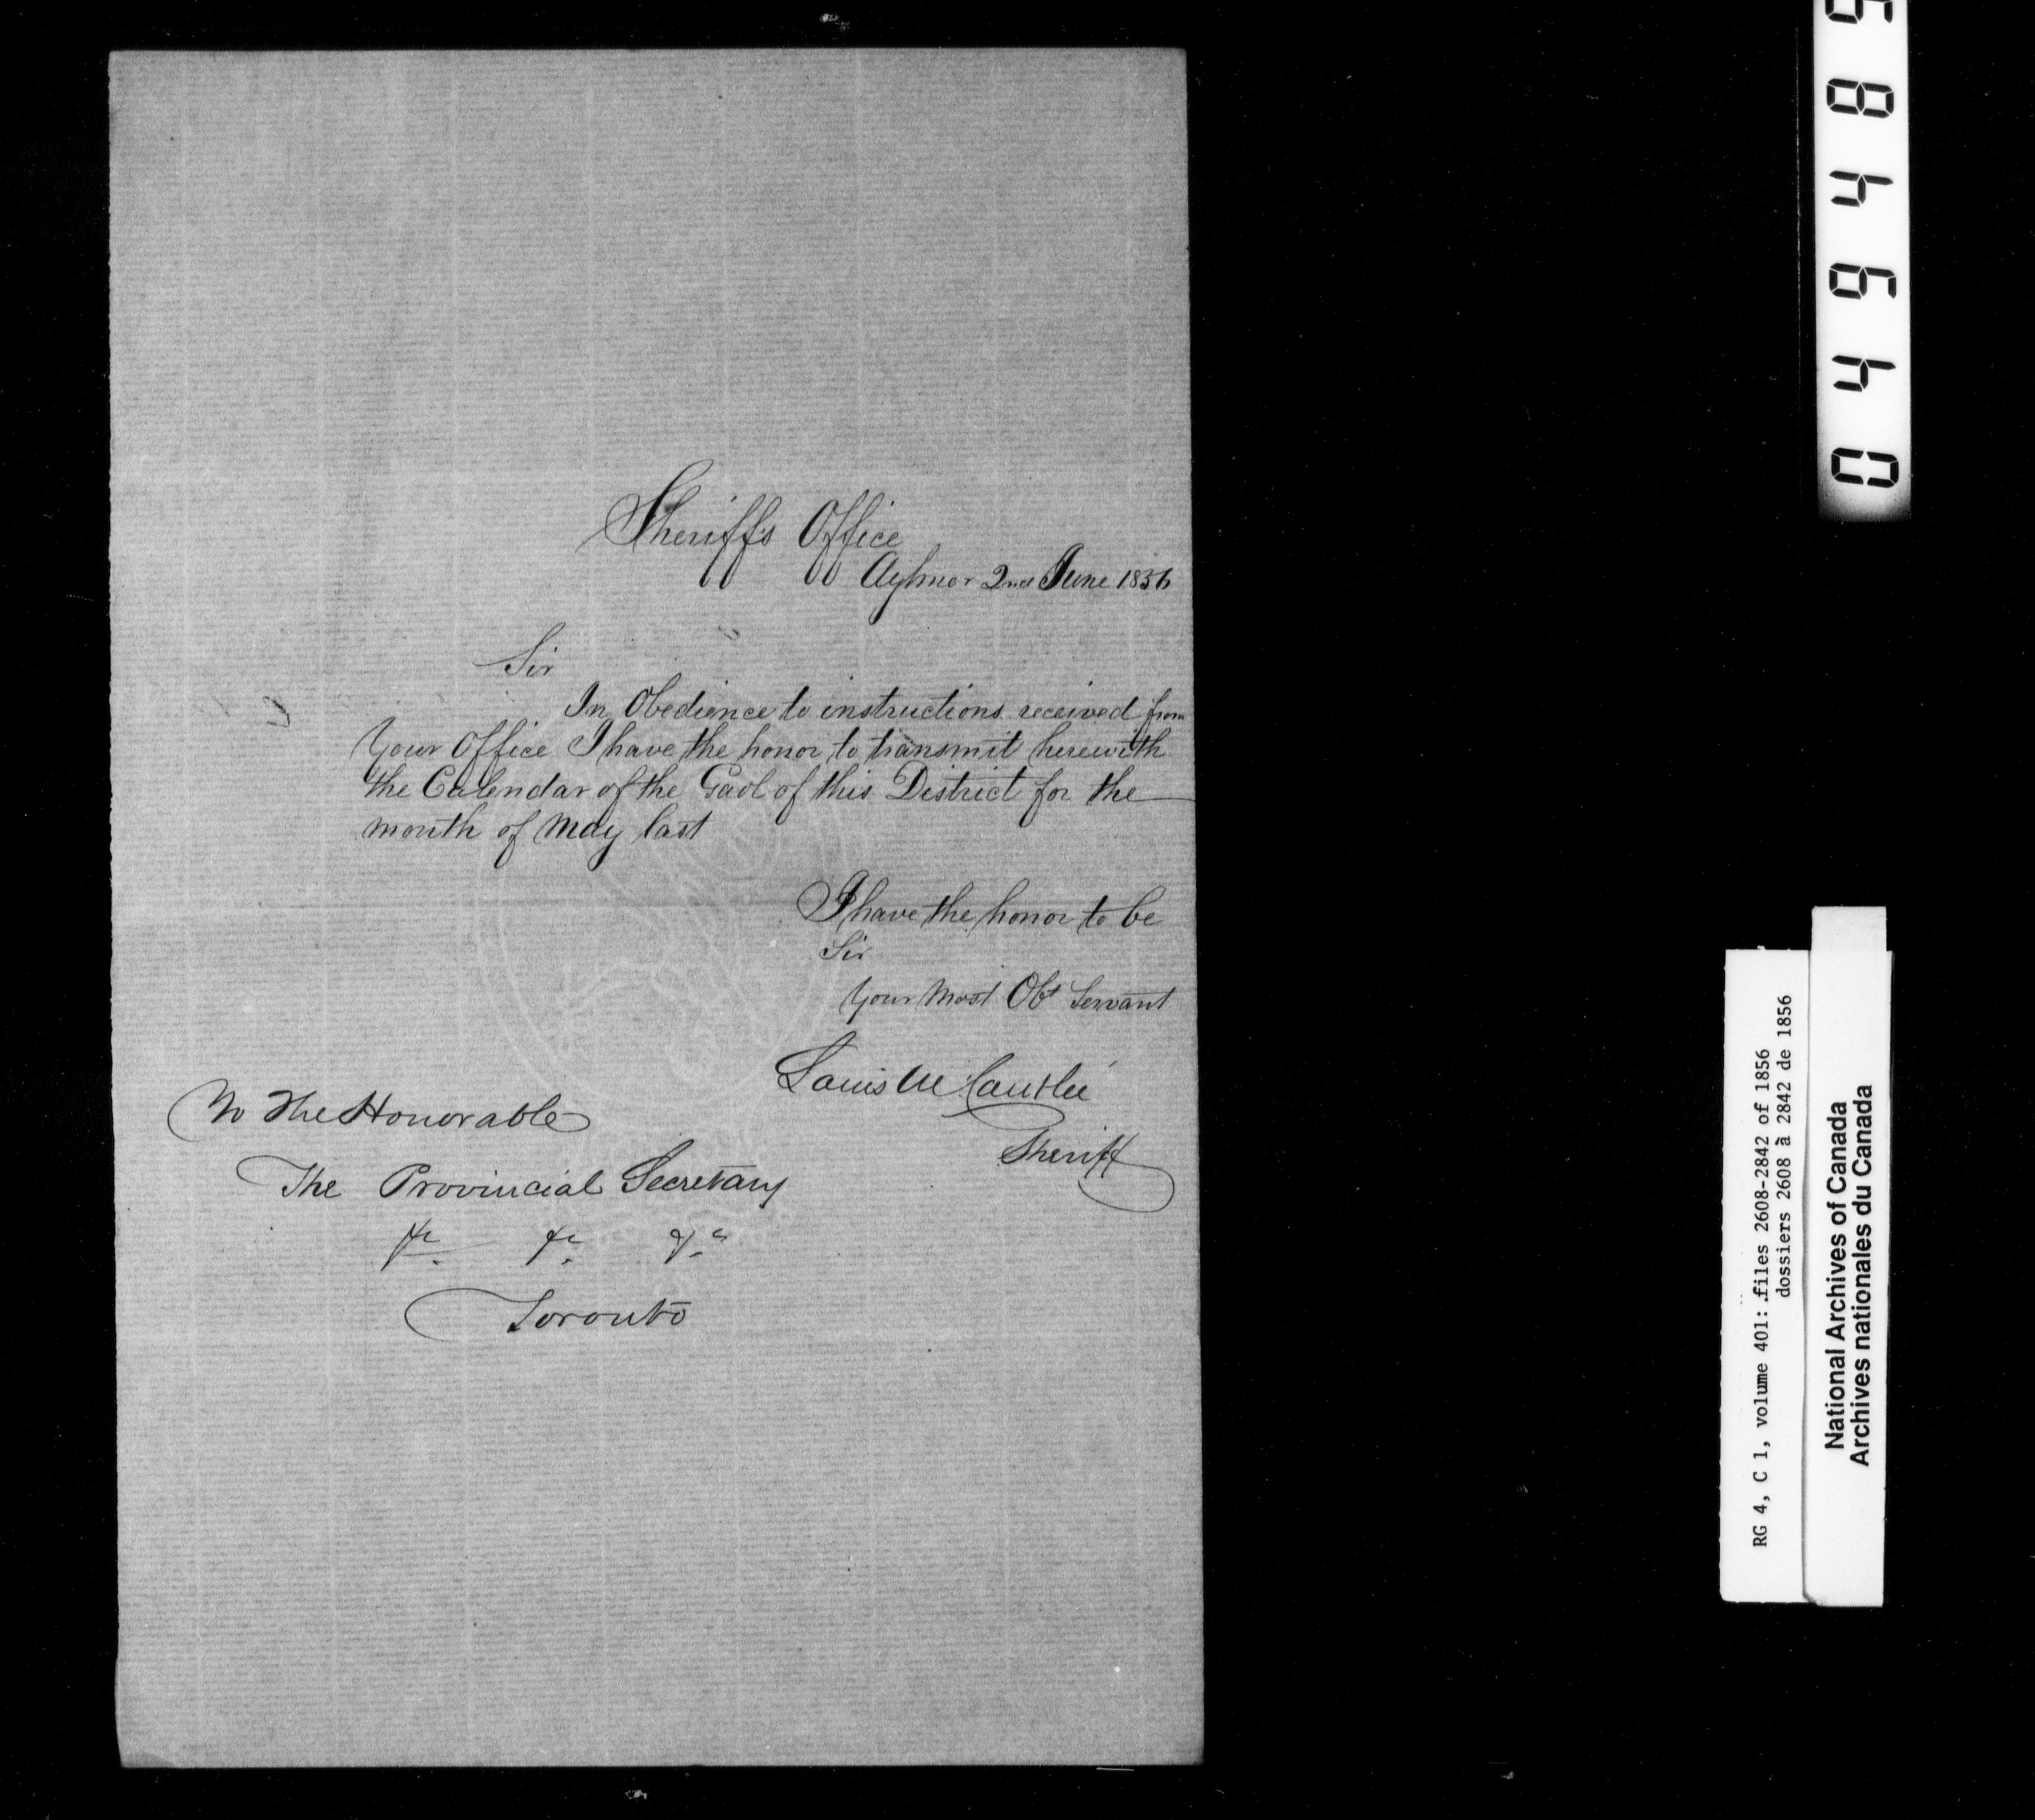 Sheriffs Office
Aylmer 2nd June 1856
Sir
In Obedience to instructions received from
Your Office I have the honor to transmit herewith
the Calendar of the Gaol of this District for the
month of May last
I have the honor to be
Sir
Your Most Obt Servant
Louis M Coutlée
Sheriff
To The Honorable
The Provincial Secretary
&c &c &c
Toronto
RG 4, C 1, volume 401: files 2608-2842 of 1856
dossiers 2608 à 2842 de 1856
National Archives of Canada
Archives nationales du Canada